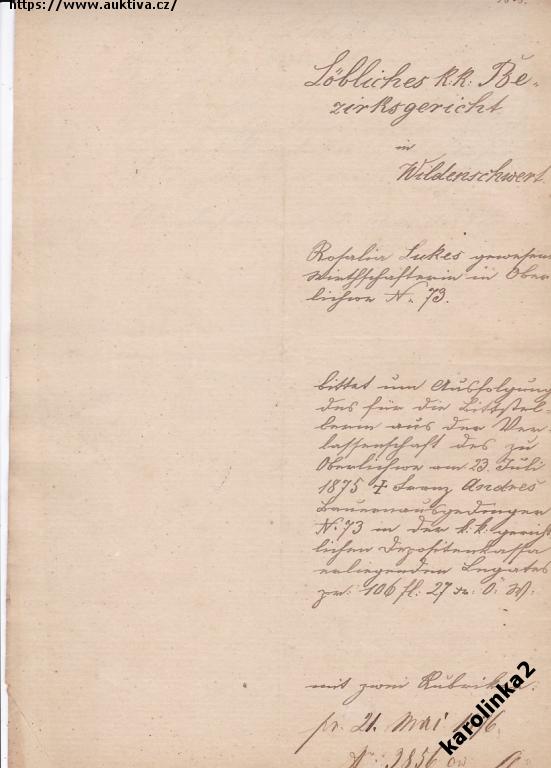 https://www.auktiva.cz/
Löbliches k.k: Be-
zirksgericht
in
Wildenschwert
Rosalia Lukes gewesene
Wirthschafterin in Ober
lichwe N. 73.
bittet um Ausfolgung
des für die Bittstel-
lerin aus der Ver-
lassenschaft des zu
Oberlichwe am 23. Juli
1875 ‡ Franz Andres
Bauernausgedinger
N. 73 in der k.k: gericht
lichen Depositenkassa
erliegenden Legates
pr: 106 fl: 27 kr: Ö: W:
mit zwei Rubriken.
pr. 21. Mai
N 3856
karolinka2